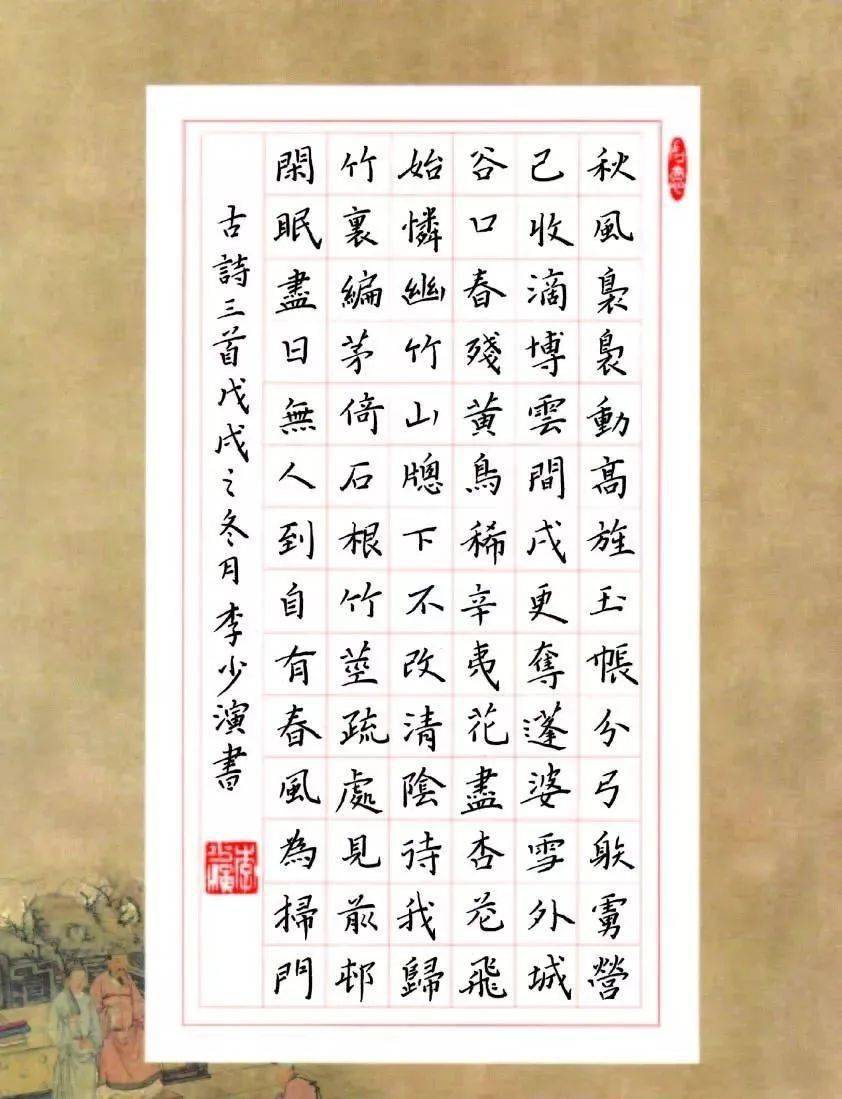 秋風裊裊動高旌玉帳分弓䠶虜營
已收滴博雲間戍更奪蓬婆雪外城
谷口春殘黃鳥稀辛夷花盡杏花飛
始憐幽竹山牕下不改清陰待我歸
竹裏編茅倚石根竹莖疏處見前邨
閑眠盡日無人到自有春風為掃門
古詩三首戊戌之冬月李少演書
李少演